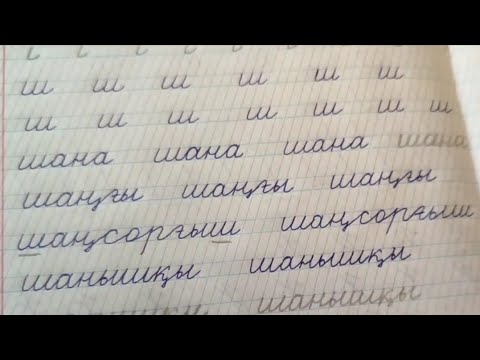 ш ш ш ш ш ш
ш ш ш ш ш ш ш
шана шана шана шана
шаңғы шаңғы шаңғы
шаңсорғыш шаңсорғыш
шанышқы шанышқы
шанышқы